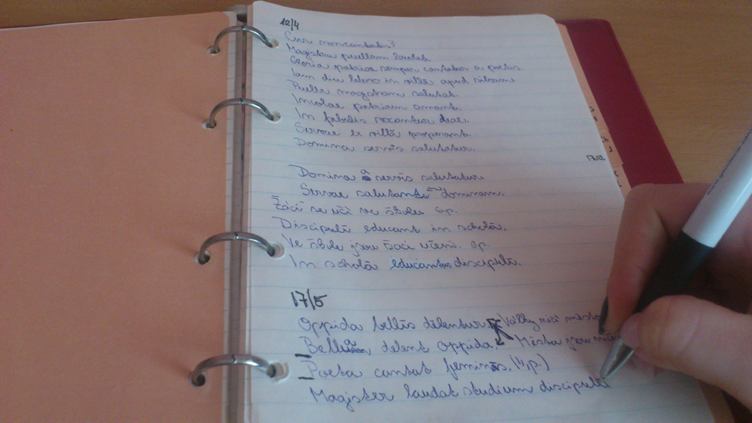 12/4
Cur non cantabas?
Magistra puellam
Gloria patriae semper cantabas a poetis
Iam diu in villa apud
Puella magistram salutat.
Incolae patriam amant.
In fabulis vocantur deae.
Servae e villā properant.
Domina servis salutatur.
Domina a servis salutatur.
Servae salutant dominam.
Žáci se učí ve škole
Discipuli educant in scholā.
Ve škole jsou žáci učeni.
In scholā educantur discipuli.
17/5
Oppida bellīs delentur Války ničí města
Bella delent oppida Města jsou
Poeta cantat feminās. (4.p.)
Magister laudat studium discipuli